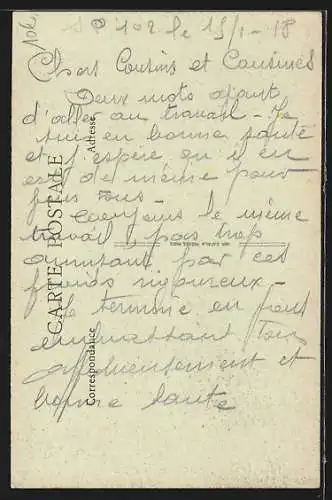 S P 102 le 15/1-18
Chers Cousins et Cousines
Deux mots avant
d'aller au travail - Je
suis en bonne santé
et j'espère qu'il en
est de même pour
vous tous -
Toujours le même
travail, pas trop
amusant par ces
froids rigoureux -
Je termine en vous
embrassant tous
affectueusement et
bonne santé
CARTE POSTALE
Correspondance
Adresse